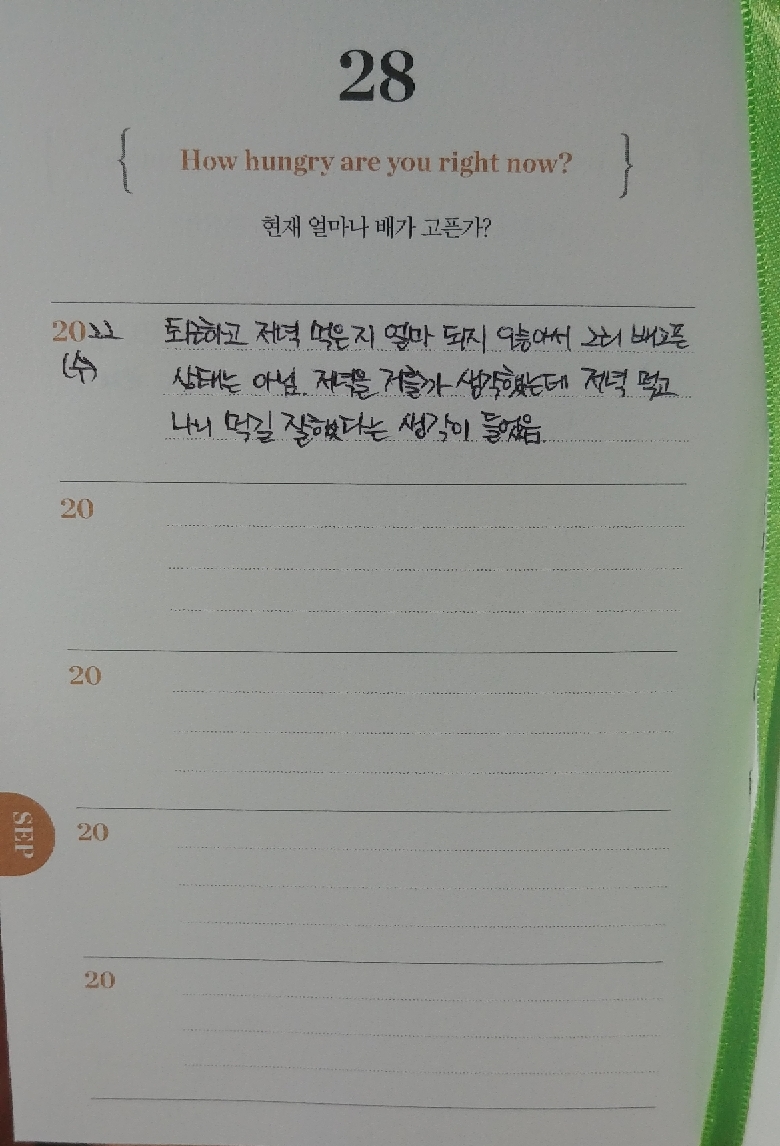 28
{ How hungry are you right now? }
현재 얼마나 배가 고픈가?
2022 퇴근하고 저녁 먹은지 얼마 되지 않아서 그리 배고픈
(수) 상태는 아님. 저녁을 거를까 생각했는데 저녁 먹고
나니 먹길 잘했다는 생각이 들었음.
20
20
SEP
20
20